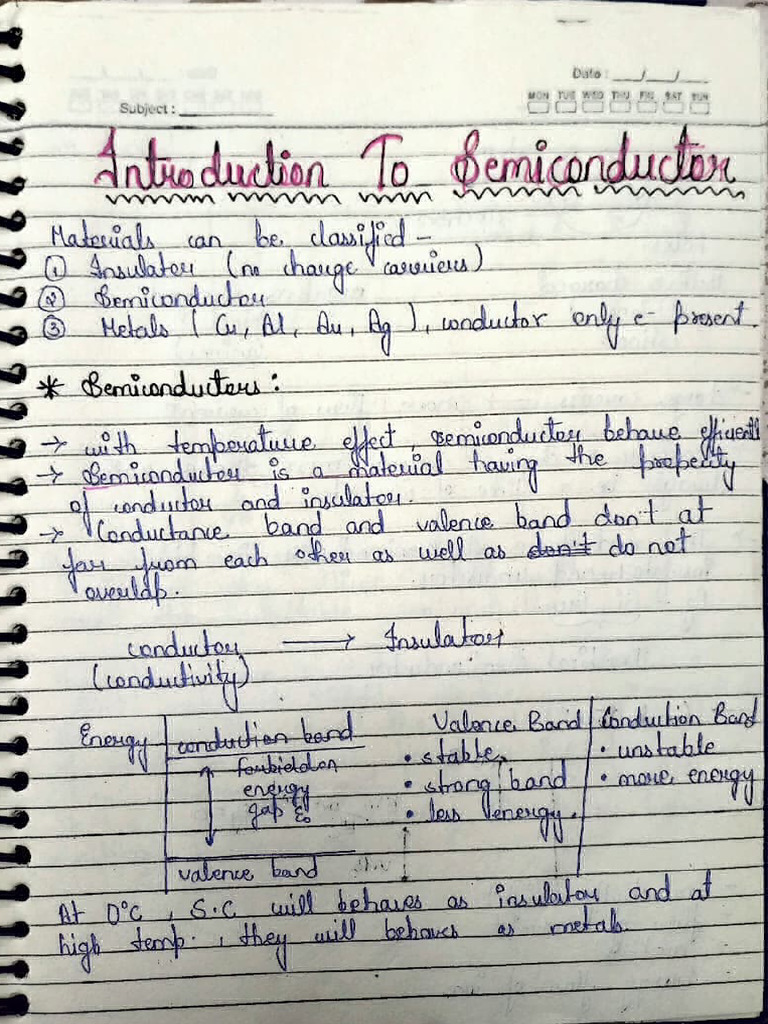 Date : __/__/__
MON TUE WED THU FRI SAT SUN
Subject : ________
Introduction To Semiconductor
Materials can be classified -
① Insulator (no change carriers)
② Semiconductor
③ Metals ( Cu, Al, Au, Ag ), conductor only e- present.
* Semiconductors :
→ with temperature effect, semiconductor behave efficiently
→ Semiconductor is a material having the property
of conductor and insulator.
→ Conductance band and valence band don't at
far from each other as well as don't do not
overlap.
conductor → Insulator
(conductivity)
Energy conduction band
forbidden
energy
gap
valence band
Valence Band
• stable
• strong band
• less energy.
Conduction Band
• unstable
• more energy
At 0°C , S.C will behaves as insulator and at
high temp. , they will behaves as metals.